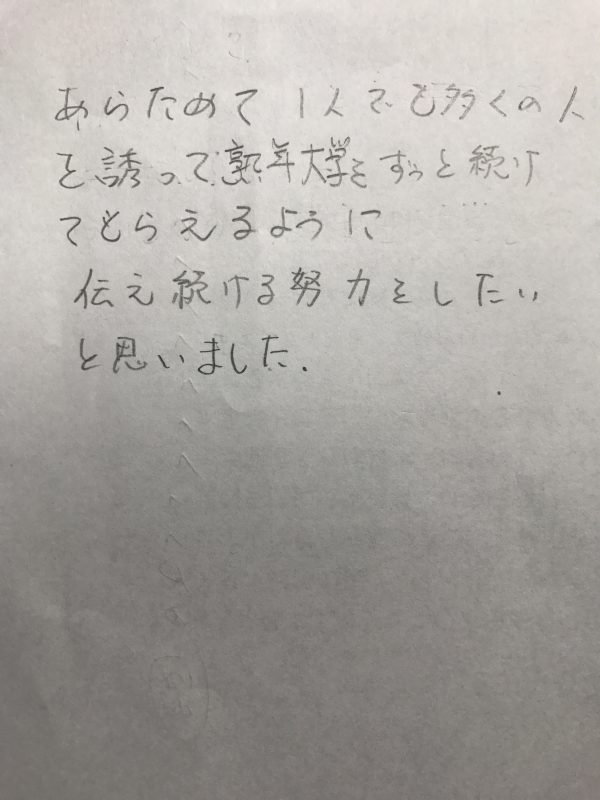 あらためて1人でも多くの人
を誘って熟年大学をずっと続け
てもらえるように
伝え続ける努力をしたい
と思いました.